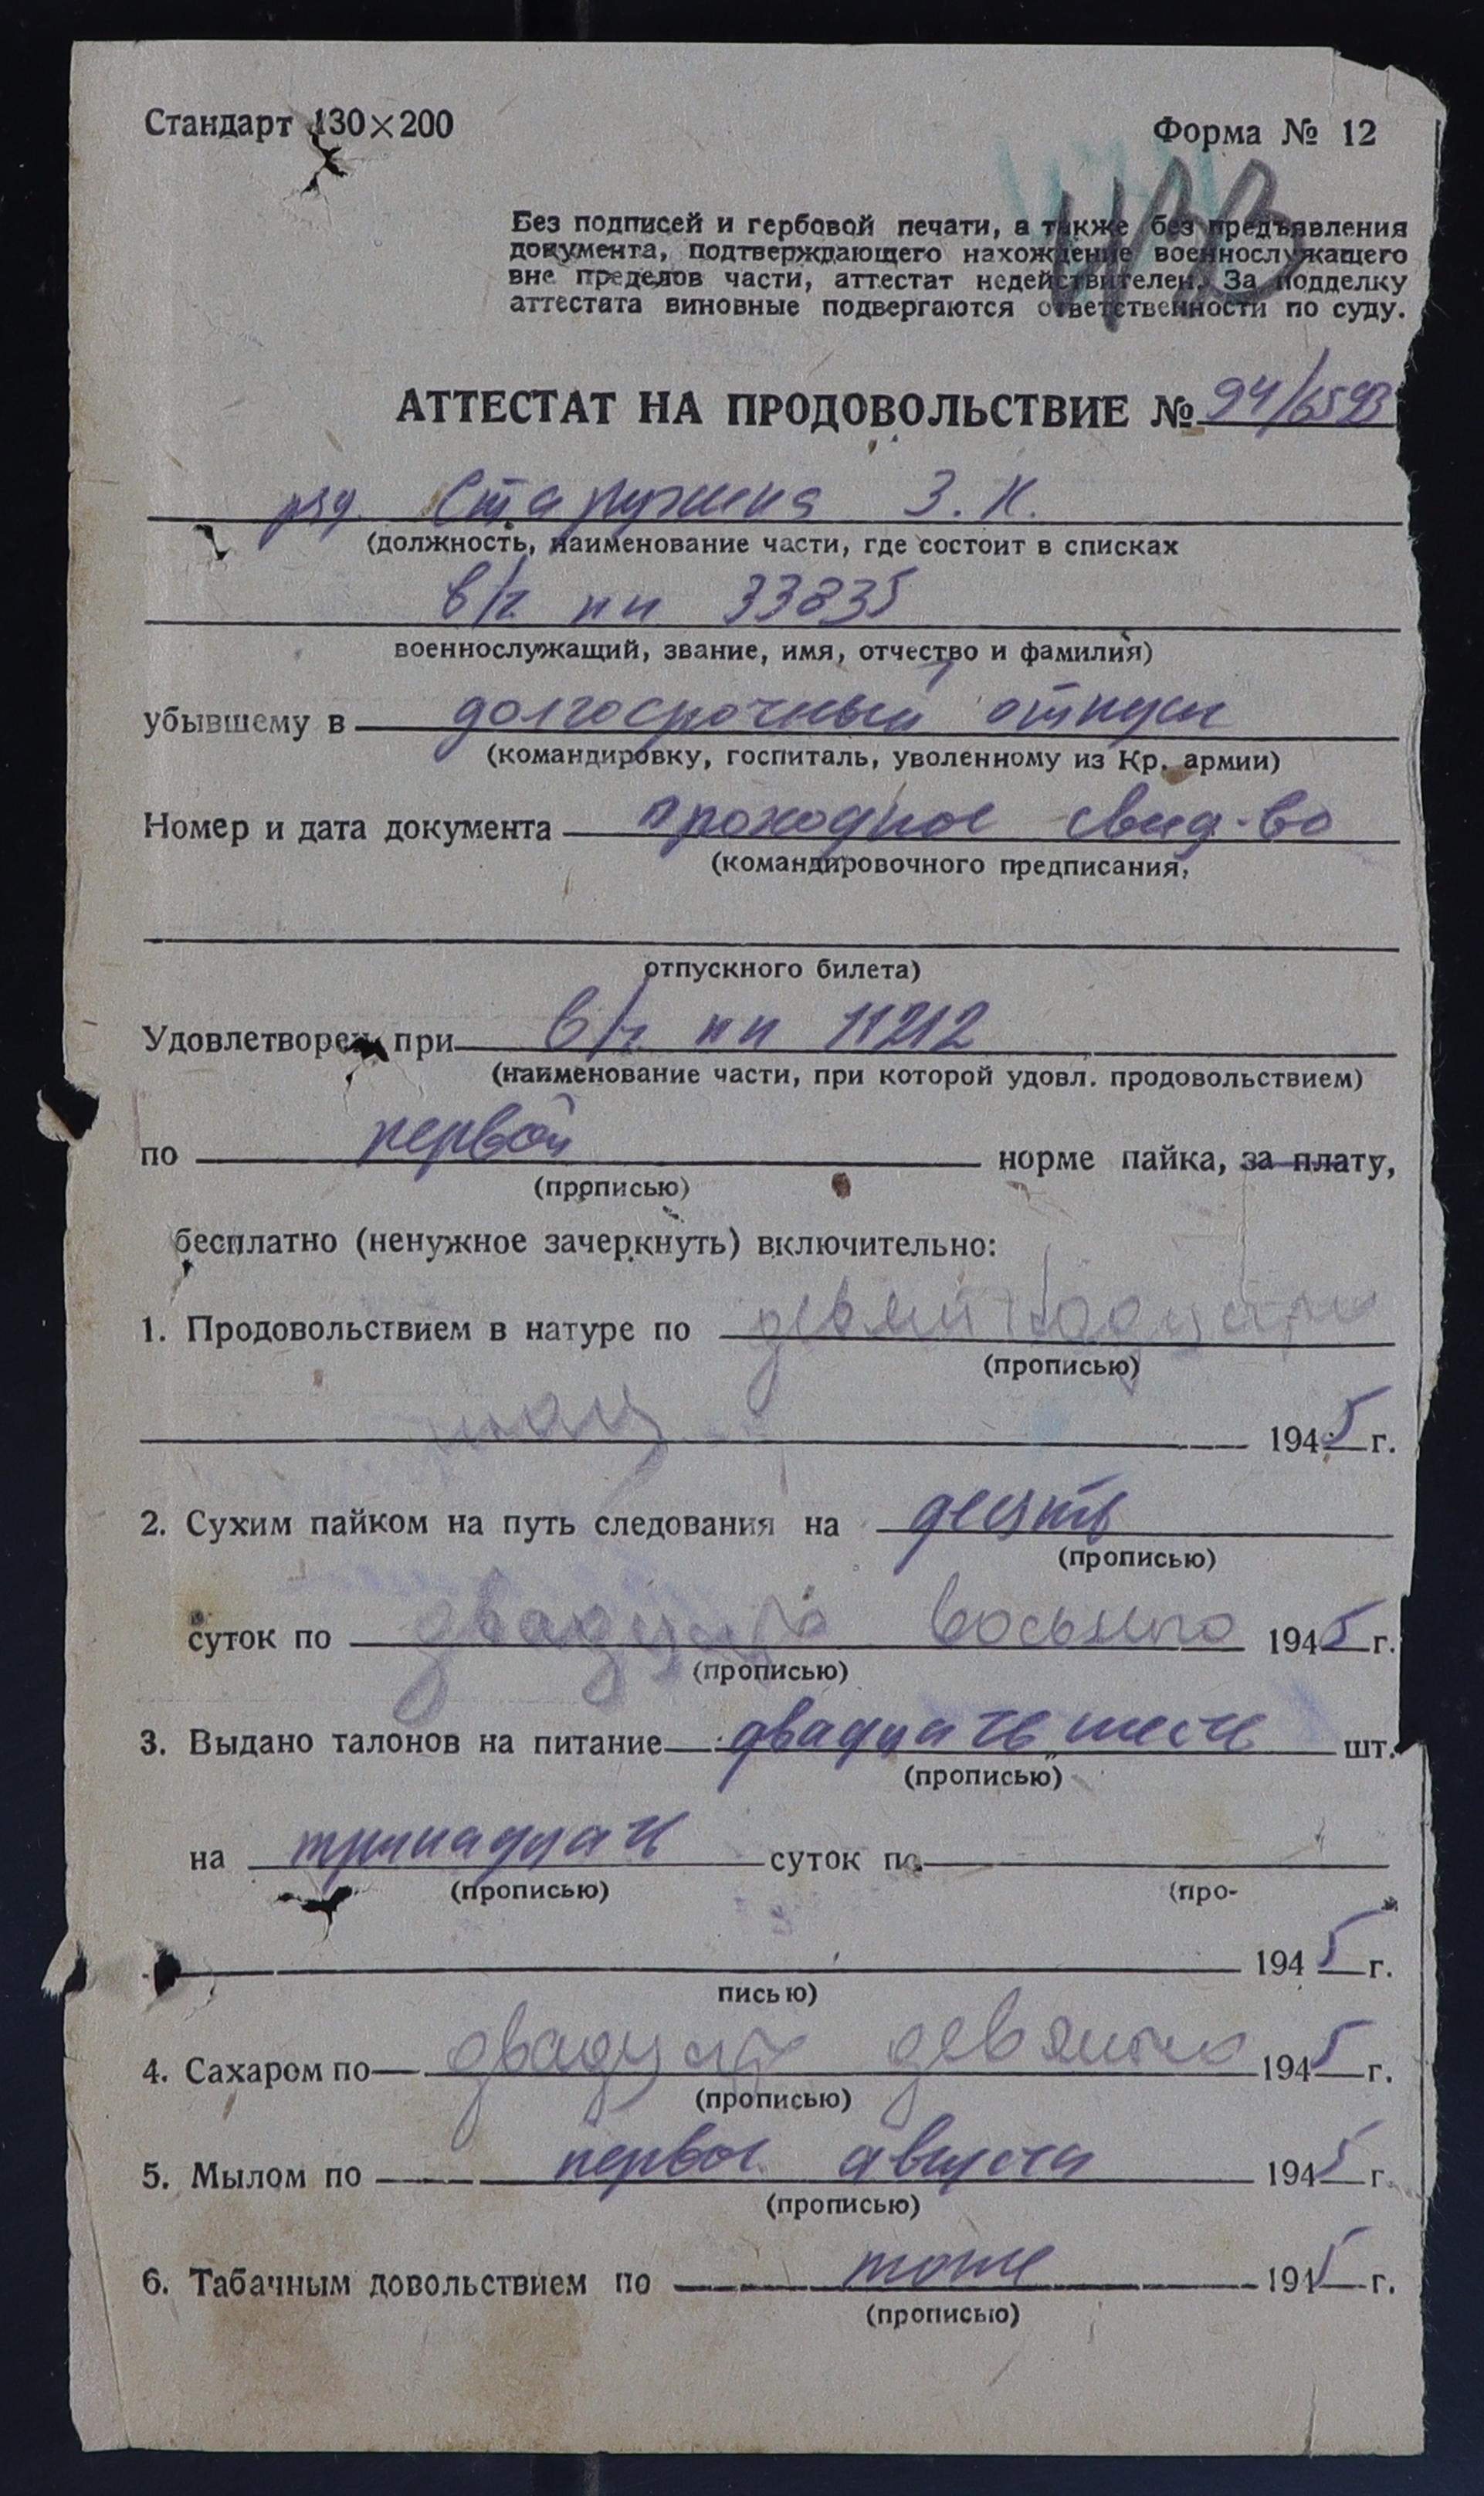 Стандарт 130×200
Форма № 12
Без подписей и гербовой печати, а также без предъявления
документа, подтверждающего нахождение военнослужащего
вне пределов части, аттестат недействителен. За подделку
аттестата виновные подвергаются ответственности по суду.
АТТЕСТАТ НА ПРОДОВОЛЬСТВИЕ № 94/6593
ряд. Старужина З. К.
(должность, наименование части, где состоит в списках
в/ч пп 33835
военнослужащий, звание, имя, отчество и фамилия)
убывшему в долгосрочный отпуск
(командировку, госпиталь, уволенному из Кр. армии)
Номер и дата документа проходное свид-во
(командировочного предписания,
отпускного билета)
Удовлетворен при в/ч пп 11212
(наименование части, при которой удовл. продовольствием)
по первой норме пайка, за плату,
(прописью)
бесплатно (ненужное зачеркнуть) включительно:
1. Продовольствием в натуре по девятнадцатое
(прописью)
1945 г.
2. Сухим пайком на путь следования на десять
(прописью)
суток по двадцать восьмого 1945 г.
(прописью)
3. Выдано талонов на питание двадцать шесть шт.
(прописью)
на тринадцать суток по
(прописью) (про-
1945 г.
писью)
4. Сахаром по двадцать девятого 1945 г.
(прописью)
5. Мылом по первое августа 1945 г.
(прописью)
6. Табачным довольствием по тоже 1945 г.
(прописью)